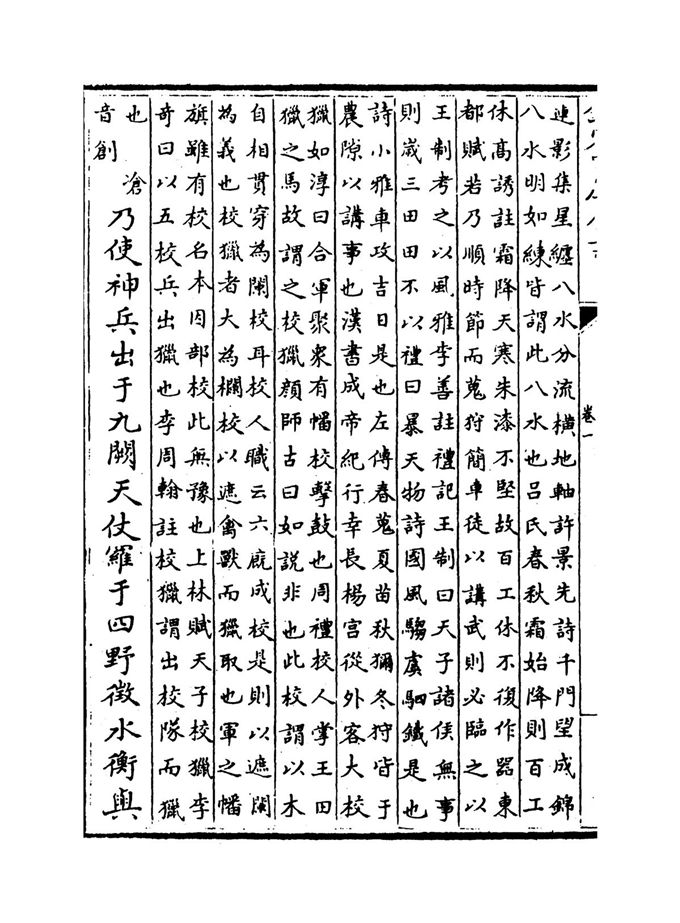 卷一
連影集星纏八水分流橫地軸許景先詩千門望成錦
八水明如練皆謂此八水也呂氏春秋霜始降則百工
休高誘註霜降天寒朱漆不堅故百工休不復作器東
都賦若乃順時節而蒐狩簡車徒以講武則必臨之以
王制考之以風雅李善註禮記王制曰天子諸侯無事
則歲三田田不以禮曰暴天物詩國風騶虞駟鐵是也
詩小雅車攻吉日是也左傳春蒐夏苗秋獮冬狩皆于
農隙以講事也漢書成帝紀行幸長楊宮從外客大校
獵如淳曰合軍聚衆有幡校擊鼓也周禮校人掌王田
獵之馬故謂之校獵顏師古曰如說非也此校謂以木
自相貫穿為闌校耳校人職云六廐成校是則以遮闌
為義也校獵者大為欄校以遮禽獸而獵取也軍之幡
旗雖有校名本因部校此無豫也上林賦天子校獵李
奇曰以五校兵出獵也李周翰註校獵謂出校隊而獵
也 滄
音創
乃使神兵出于九闕天仗羅于四野徵水衡與